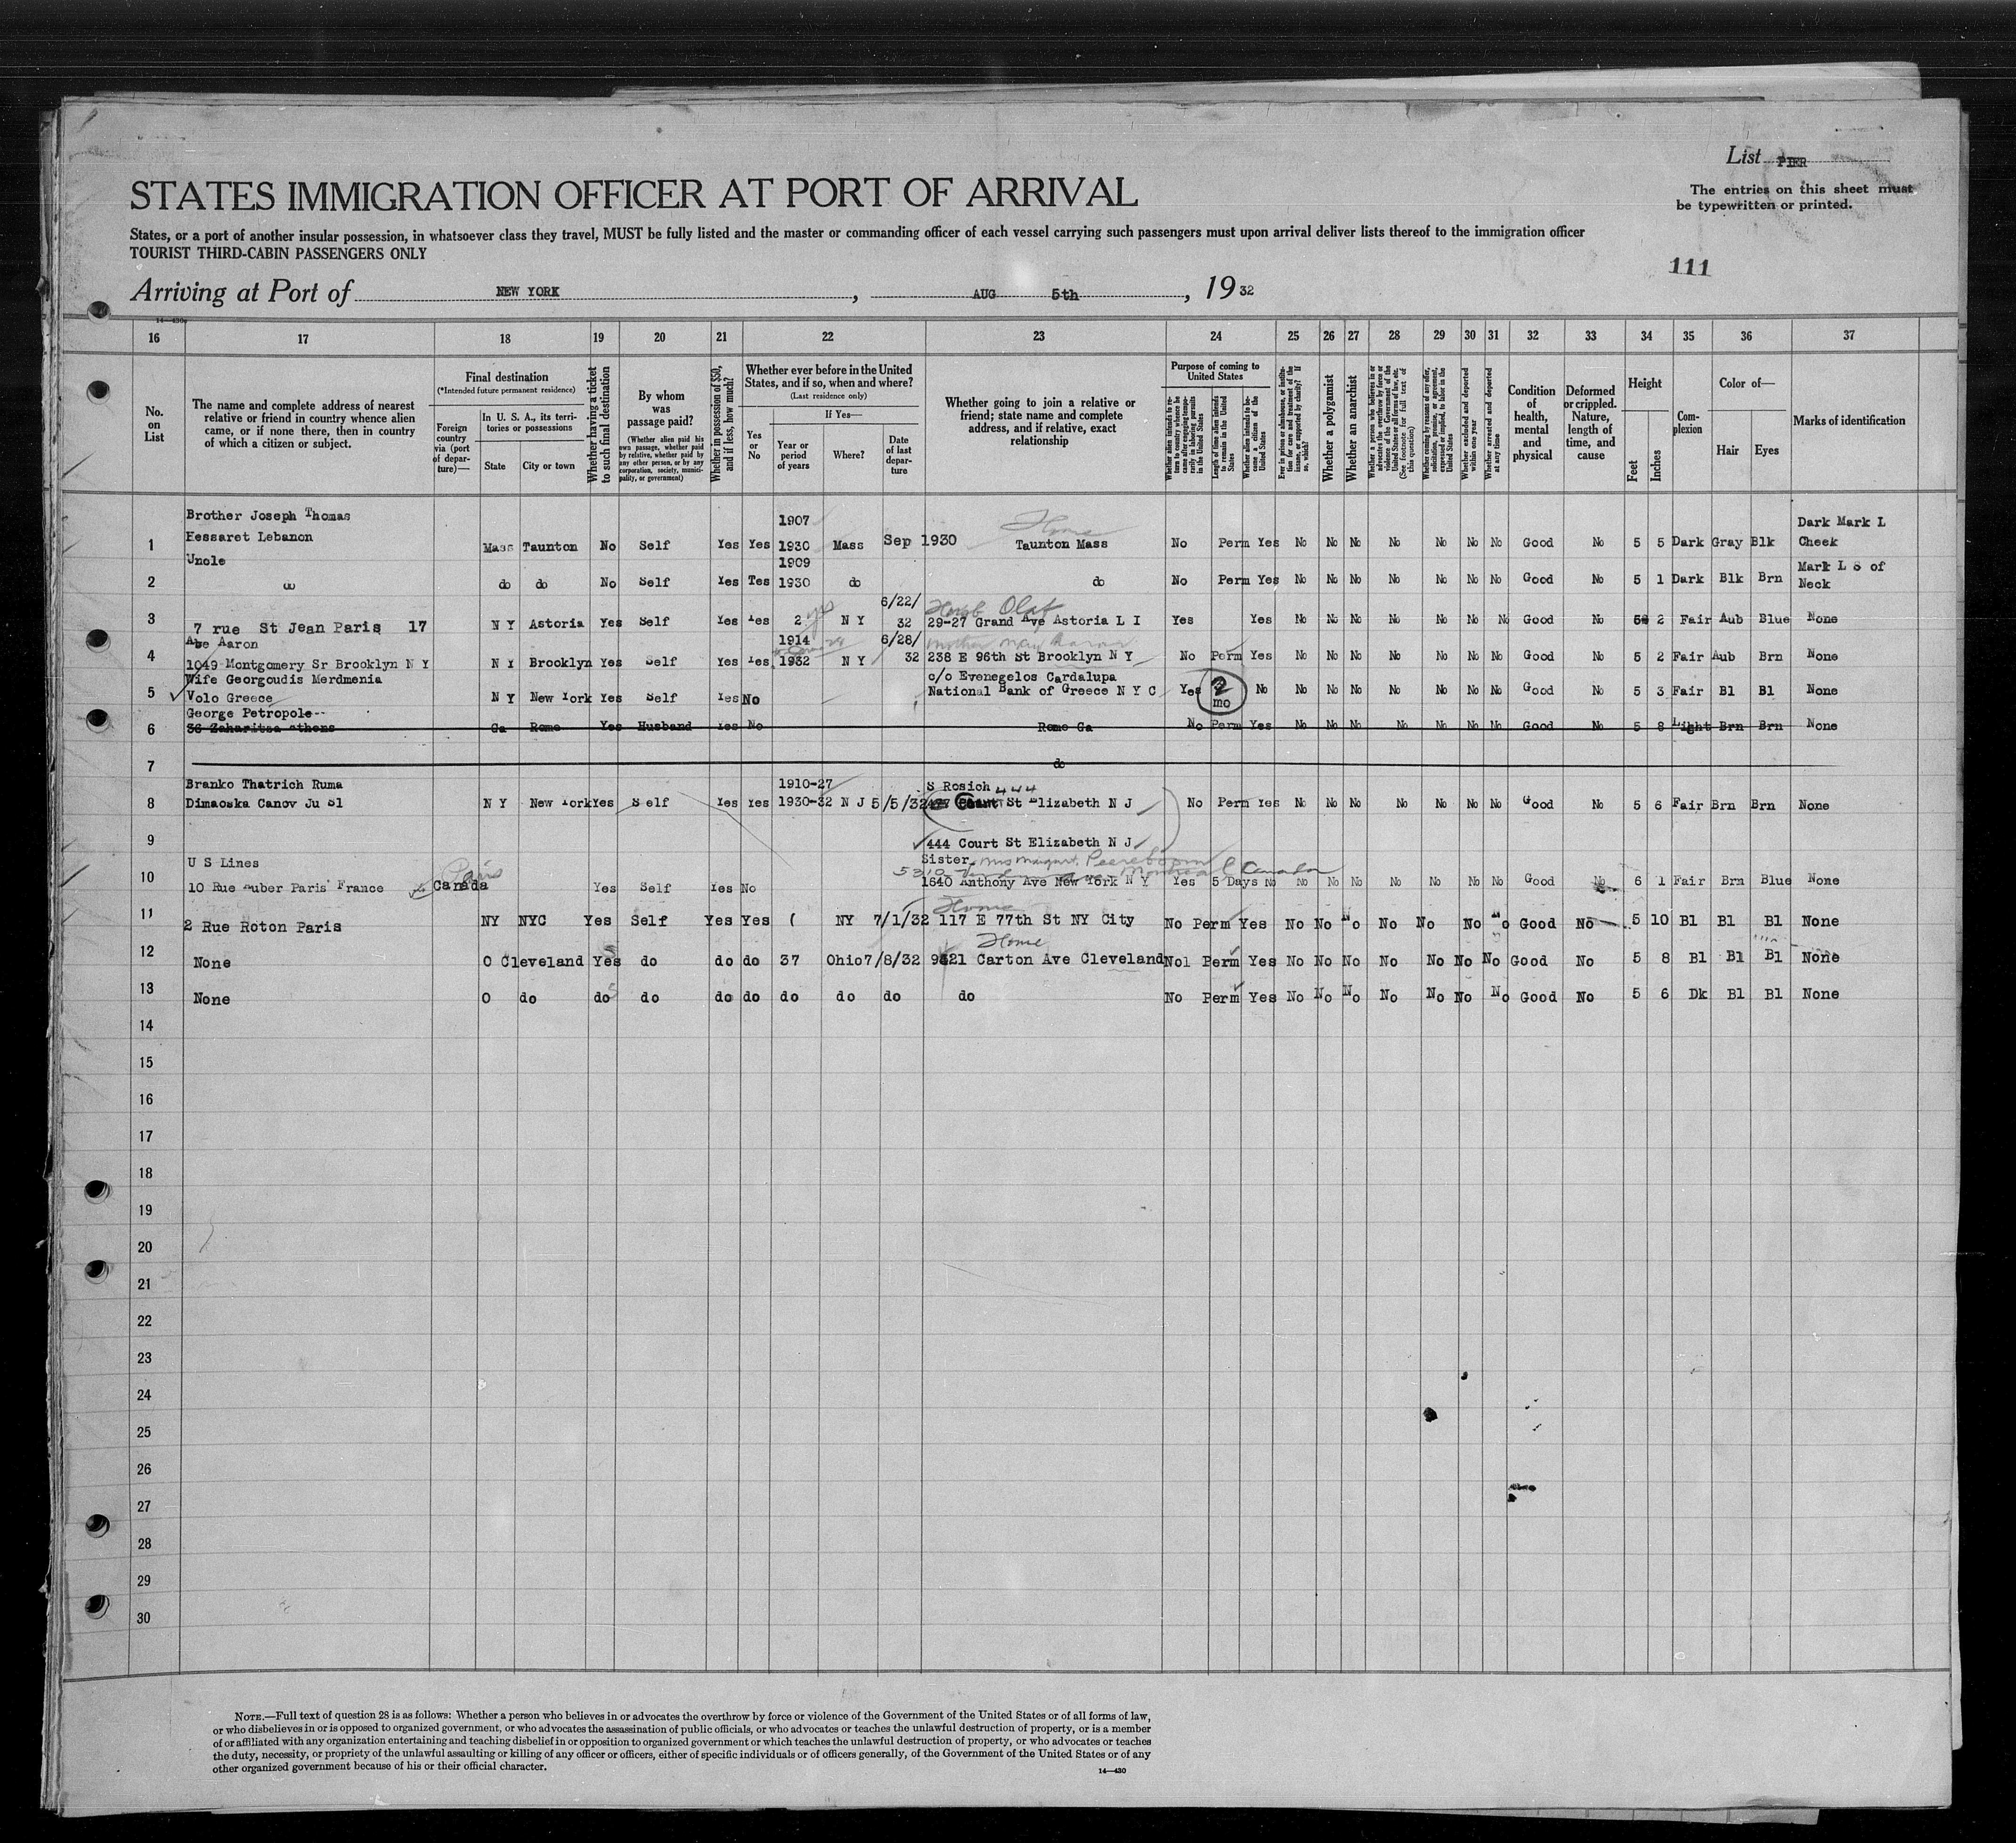 List PIER
STATES IMMIGRATION OFFICER AT PORT OF ARRIVAL
The entries on this sheet must
be typewritten or printed.
States, or a port of another insular possession, in whatsoever class they travel, MUST be fully listed and the master or commanding officer of each vessel carrying such passengers must upon arrival deliver lists thereof to the immigration officer
TOURIST THIRD-CABIN PASSENGERS ONLY
111
Arriving at Port of NEW YORK, AUG 5th, 1932
14—430
16 17 18 19 20 21 22 23 24 25 26 27 28 29 30 31 32 33 34 35 36 37
No. on List
The name and complete address of nearest relative or friend in country whence alien came, or if none there, then in country of which a citizen or subject.
Final destination
(*Intended future permanent residence)
Foreign country via (port of departure)—
In U. S. A., its territories or possessions
State
City or town
Whether having a ticket to such final destination
By whom was passage paid?
(Whether alien paid his own passage, whether paid by relative, whether paid by any other person, or by any corporation, society, municipality, or government)
Whether in possession of $50, and if less, how much?
Whether ever before in the United States, and if so, when and where?
(Last residence only)
If Yes—
Yes or No
Year or period of years
Where?
Date of last departure
Whether going to join a relative or friend; state name and complete address, and if relative, exact relationship
Purpose of coming to United States
Whether alien intends to return to country whence he came after engaging temporarily in laboring pursuits in the United States
Length of time alien intends to remain in the United States
Whether alien intends to become a citizen of the United States
Ever in prison or almshouse, or institution for care and treatment of the insane, or supported by charity? If so, which?
Whether a polygamist
Whether an anarchist
Whether a person who believes in or advocates the overthrow by force or violence of the Government of the United States or all forms of law, etc. (See footnote for full text of this question)
Whether coming by reasons of any offer, solicitation, promise, or agreement, expressed or implied, to labor in the United States
Whether excluded and deported within one year
Whether arrested and deported at any time
Condition of health, mental and physical
Deformed or crippled. Nature, length of time, and cause
Height
Feet
Inches
Complexion
Color of—
Hair
Eyes
Marks of identification
Brother Joseph Thomas 1907 Home Dark Mark L
1 Hessaret Lebanon Mass Taunton No Self Yes Yes 1930 Mass Sep 1930 Taunton Mass No Perm Yes No No No No No No No Good No 5 5 Dark Gray Blk Cheek
Uncle 1909 Mark L S of
2 do do do No Self Yes Tes 1930 do do No Perm Yes No No No No No No No Good No 5 1 Dark Blk Brn Neck
6/22/ Olaf
3 7 rue St Jean Paris 17 N Y Astoria Yes Self Yes Yes 2 yrs N Y 32 29-27 Grand Ave Astoria L I Yes Yes No No No No No No No Good No 5 2 Fair Aub Blue None
Abe Aaron 1914 6/28/ Mother May Aaron
4 1049 Montgomery Sr Brooklyn N Y N Y Brooklyn Yes Self Yes Yes 1932 N Y 32 238 E 96th St Brooklyn N Y No Perm Yes No No No No No No No Good No 5 2 Fair Aub Brn None
Wife Georgoudis Merdmenia c/o Evenegelos Cardalupa
5 Volo Greece N Y New York Yes Self Yes No National Bank of Greece N Y C Yes 2 mo No No No No No No No No Good No 5 3 Fair Bl Bl None
George Petropole--
6 36 Zaharitsa Athens Ga Rome Yes Husband Yes No Rome Ga No Perm Yes No No No No No No No Good No 5 8 Light Brn Brn None
7 do
Branko Thatrich Ruma 1910-27 S Rosich 444
8 Dimaoska Canov Ju Sl N Y New York Yes Self Yes Yes 1930-32 N J 5/5/32 Court St Elizabeth N J No Perm Yes No No No No No No No Good No 5 6 Fair Brn Brn None
9 444 Court St Elizabeth N J
U S Lines Paris Sister Mrs Margart Peereboom
5310 Montreal Canada
10 10 Rue Auber Paris France Canada Yes Self Yes No 1640 Anthony Ave New York N Y Yes 5 Days No No No No No No No No Good No 6 1 Fair Brn Blue None
Home
11 2 Rue Roton Paris NY NYC Yes Self Yes Yes ( NY 7/1/32 117 E 77th St NY City No Perm Yes No No No No No No No Good No 5 10 Bl Bl Bl None
Home
12 None O Cleveland Yes do do do 37 Ohio 7/8/32 9421 Carton Ave Cleveland Nol Perm Yes No No No No No No No Good No 5 8 Bl Bl Bl None
13 None O do do do do do do do do do No Perm Yes No No No No No No No Good No 5 6 Dk Bl Bl None
14
15
16
17
18
19
20
21
22
23
24
25
26
27
28
29
30
NOTE.—Full text of question 28 is as follows: Whether a person who believes in or advocates the overthrow by force or violence of the Government of the United States or of all forms of law,
or who disbelieves in or is opposed to organized government, or who advocates the assassination of public officials, or who advocates or teaches the unlawful destruction of property, or is a member
of or affiliated with any organization entertaining and teaching disbelief in or opposition to organized government or which teaches the unlawful destruction of property, or who advocates or teaches
the duty, necessity, or propriety of the unlawful assaulting or killing of any officer or officers, either of specific individuals or of officers generally, of the Government of the United States or of any
other organized government because of his or their official character.
14—430